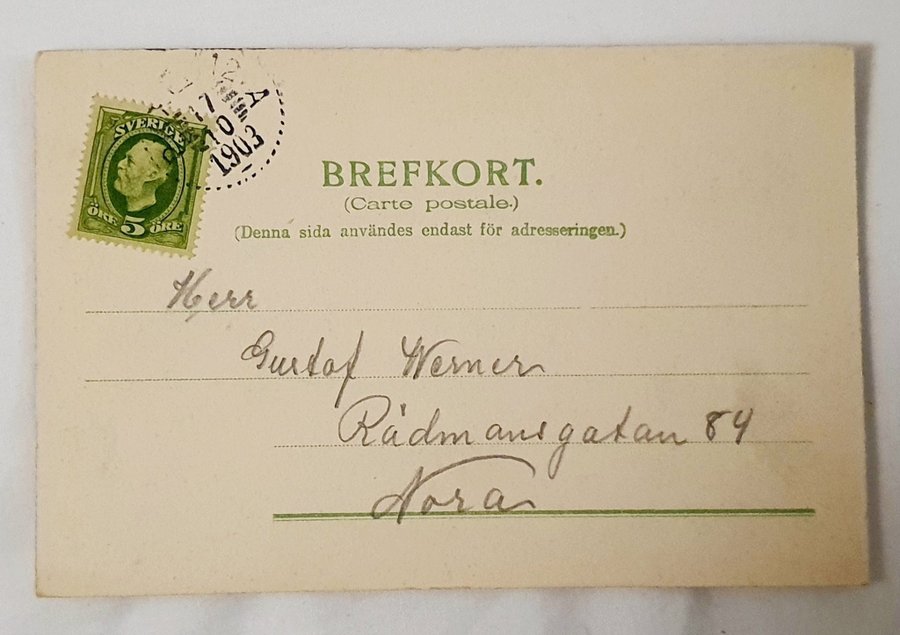 17
10
1903
SVERIGE
ÖRE 5 ÖRE
BREFKORT.
(Carte postale.)
(Denna sida användes endast för adresseringen.)
Herr
Gustaf Werner
Rådmansgatan 84
Nora